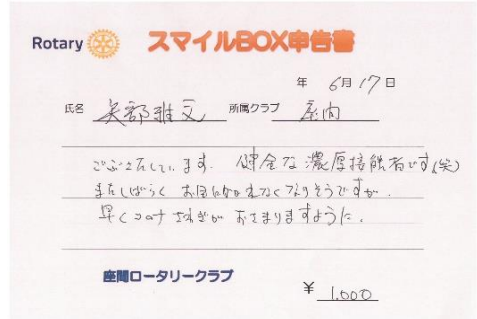 Rotary スマイルBOX申告書
年 6月17日
氏名 矢部雅文 所属クラブ 座間
ごぶさたしています。健全な濃厚接触者です(笑)
またしばらくお目にかかれなくなりそうですが、
早くコロナさわぎがおさまりますように。
座間ロータリークラブ
¥ 1.000